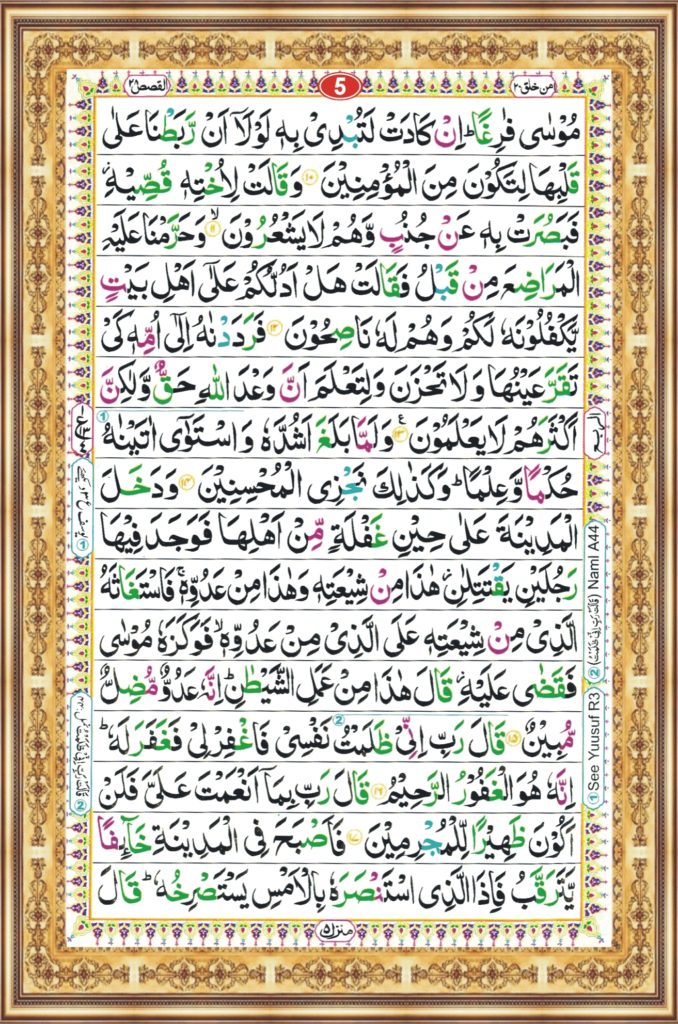 القصص ٢٨
5
امن خلق ٢٠
مُوۡسٰى فٰرِغًا ؕ اِنۡ كَادَتۡ لَتُبۡدِىۡ بِهٖ لَوۡلَاۤ اَنۡ رَّبَطۡنَا عَلٰى
قَلۡبِهَا لِتَكُوۡنَ مِنَ الۡمُؤۡمِنِيۡنَ ﴿۱۰﴾ وَقَالَتۡ لِاُخۡتِهٖ قُصِّيۡهِ ۫
فَبَصُرَتۡ بِهٖ عَنۡ جُنُبٍ وَّهُمۡ لَا يَشۡعُرُوۡنَ ۙ‏ ﴿۱۱﴾ وَحَرَّمۡنَا عَلَيۡهِ
الۡمَرَاضِعَ مِنۡ قَبۡلُ فَقَالَتۡ هَلۡ اَدُلُّكُمۡ عَلٰٓى اَهۡلِ بَيۡتٍ
يَّكۡفُلُوۡنَهٗ لَكُمۡ وَهُمۡ لَهٗ نَاصِحُوۡنَ ﴿۱۲﴾ فَرَدَدۡنٰهُ اِلٰٓى اُمِّهٖ كَىۡ
تَقَرَّ عَيۡنُهَا وَلَا تَحۡزَنَ وَلِتَعۡلَمَ اَنَّ وَعۡدَ اللّٰهِ حَقٌّ وَّلٰكِنَّ
اَكۡثَرَهُمۡ لَا يَعۡلَمُوۡنَ ﴿۱۳﴾ ع وَلَمَّا بَلَغَ اَشُدَّهٗ وَاسۡتَوٰٓى اٰتَيۡنٰهُ ①
حُكۡمًا وَّعِلۡمًا ؕ وَكَذٰلِكَ نَجۡزِى الۡمُحۡسِنِيۡنَ ﴿۱۴﴾ وَدَخَلَ
الۡمَدِيۡنَةَ عَلٰى حِيۡنِ غَفۡلَةٍ مِّنۡ اَهۡلِهَا فَوَجَدَ فِيۡهَا
رَجُلَيۡنِ يَقۡتَتِلٰنِ ۫ هٰذَا مِنۡ شِيۡعَتِهٖ وَهٰذَا مِنۡ عَدُوِّهٖ ۚ فَاسۡتَغَاثَهُ
الَّذِىۡ مِنۡ شِيۡعَتِهٖ عَلَى الَّذِىۡ مِنۡ عَدُوِّهٖ ۙ فَوَكَزَهٗ مُوۡسٰى
فَقَضٰى عَلَيۡهِ ۫ قَالَ هٰذَا مِنۡ عَمَلِ الشَّيۡطٰنِ ؕ اِنَّهٗ عَدُوٌّ مُّضِلٌّ
مُّبِيۡنٌ ﴿۱۵﴾ قَالَ رَبِّ اِنِّىۡ ظَلَمۡتُ ② نَفۡسِىۡ فَاغۡفِرۡ لِىۡ فَغَفَرَ لَهٗ ؕ
اِنَّهٗ هُوَ الۡغَفُوۡرُ الرَّحِيۡمُ ﴿۱۶﴾ قَالَ رَبِّ بِمَاۤ اَنۡعَمۡتَ عَلَىَّ فَلَنۡ
اَكُوۡنَ ظَهِيۡرًا لِّلۡمُجۡرِمِيۡنَ ﴿۱۷﴾ فَاَصۡبَحَ فِى الۡمَدِيۡنَةِ خَآئِفًا
يَّتَرَقَّبُ فَاِذَا الَّذِى اسۡتَنۡصَرَهٗ بِالۡاَمۡسِ يَسۡتَصۡرِخُهٗ ؕ قَالَ
منزل ۵
الربع
① See Yuusuf R3 ② (قَالَتْ رَبِّ اِنِّيْ ظَلَمْتُ) Naml A44